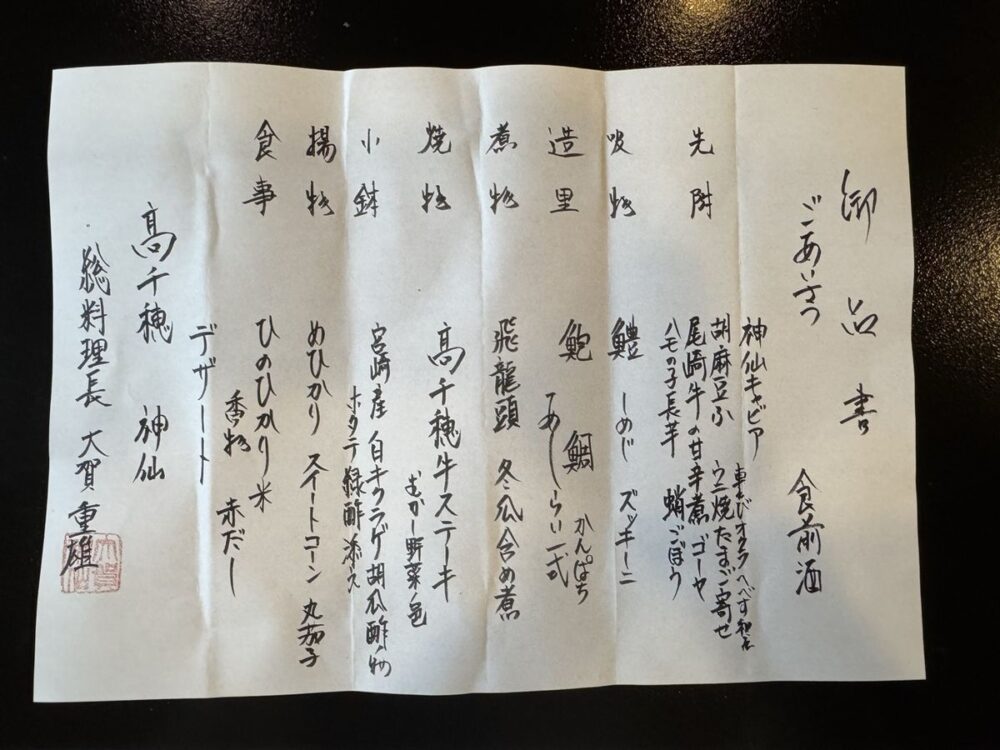 御品書
ごあいさつ 食前酒
先附 神仙キャビア 車えびオクラへべす和え
胡麻豆ふ ウニ焼たまご寄せ
尾崎牛の甘辛煮 ゴーヤ
ハモの子長芋 蛸ごぼう
吸物 鱧 しめじ ズッキーニ
造里 鮑 鯛 かんぱち
あしらい一式
煮物 飛龍頭 冬瓜含め煮
焼物 高千穂牛ステーキ
むかし野菜の色
小鉢 宮崎産 白キクラゲ胡瓜酢の物
ホタテ緑酢添え
揚物 めひかり スイートコーン 丸茄子
食事 ひのひかり米
香物 赤だし
デザート
高千穂 神仙
総料理長 大賀重雄